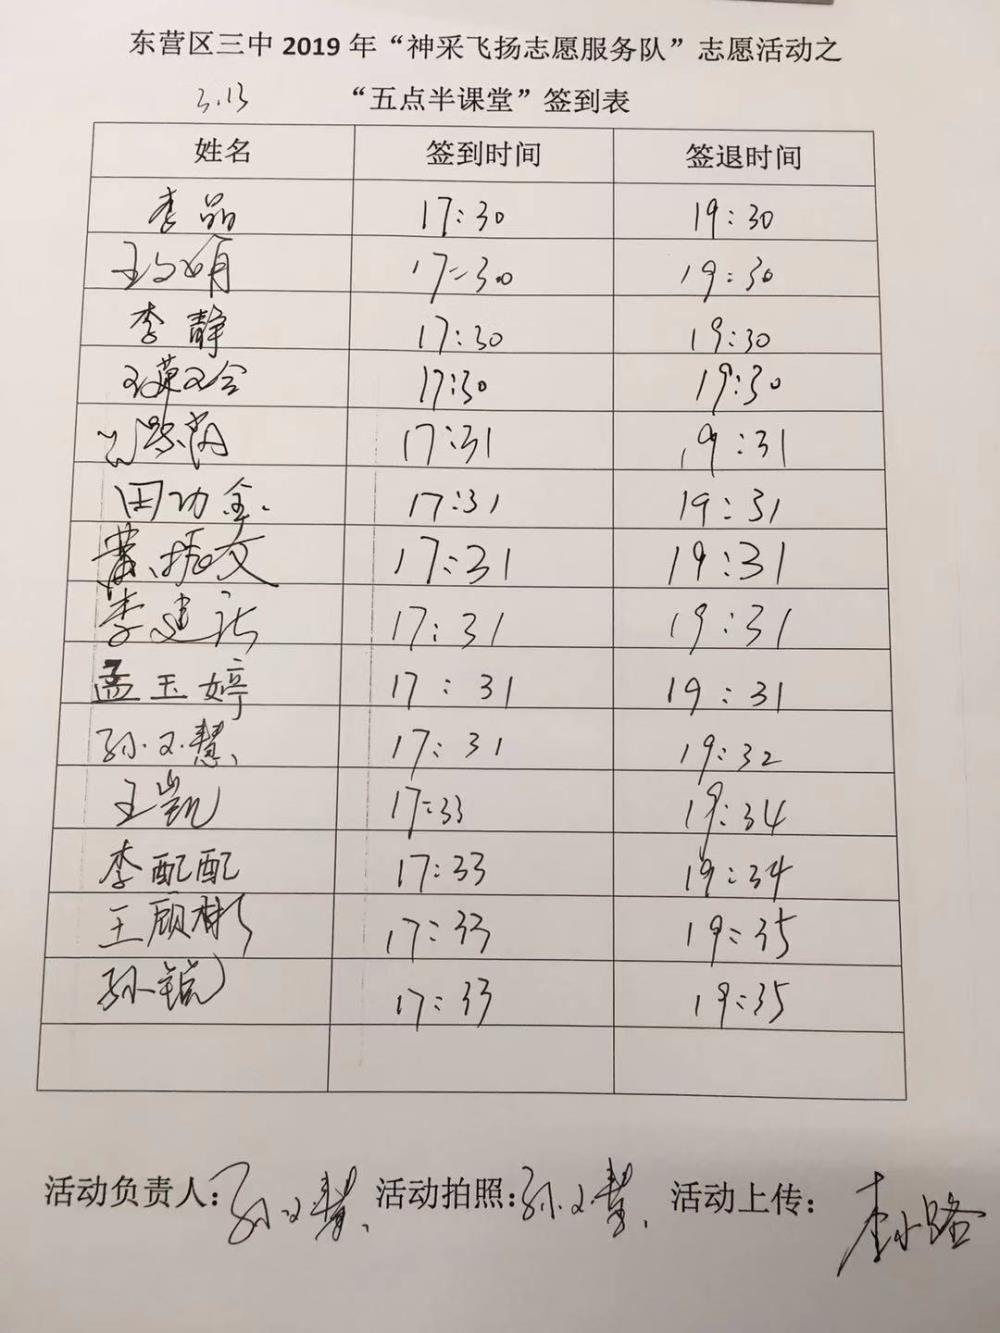 东营区三中 2019 年“神采飞扬志愿服务队”志愿活动之
3.13 “五点半课堂”签到表
姓名 签到时间 签退时间
李晶 17:30 19:30
17:30 19:30
李静 17:30 19:30
17:30 19:30
17:31 19:31
田功金 17:31 19:31
17:31 19:31
李建 17:31 19:31
孟玉婷 17:31 19:31
孙文慧 17:31 19:32
王凯 17:33 19:34
李配配 17:33 19:34
王顾彬 17:33 19:35
孙锐 17:33 19:35
活动负责人:孙文慧 活动拍照:孙文慧 活动上传: 李小路